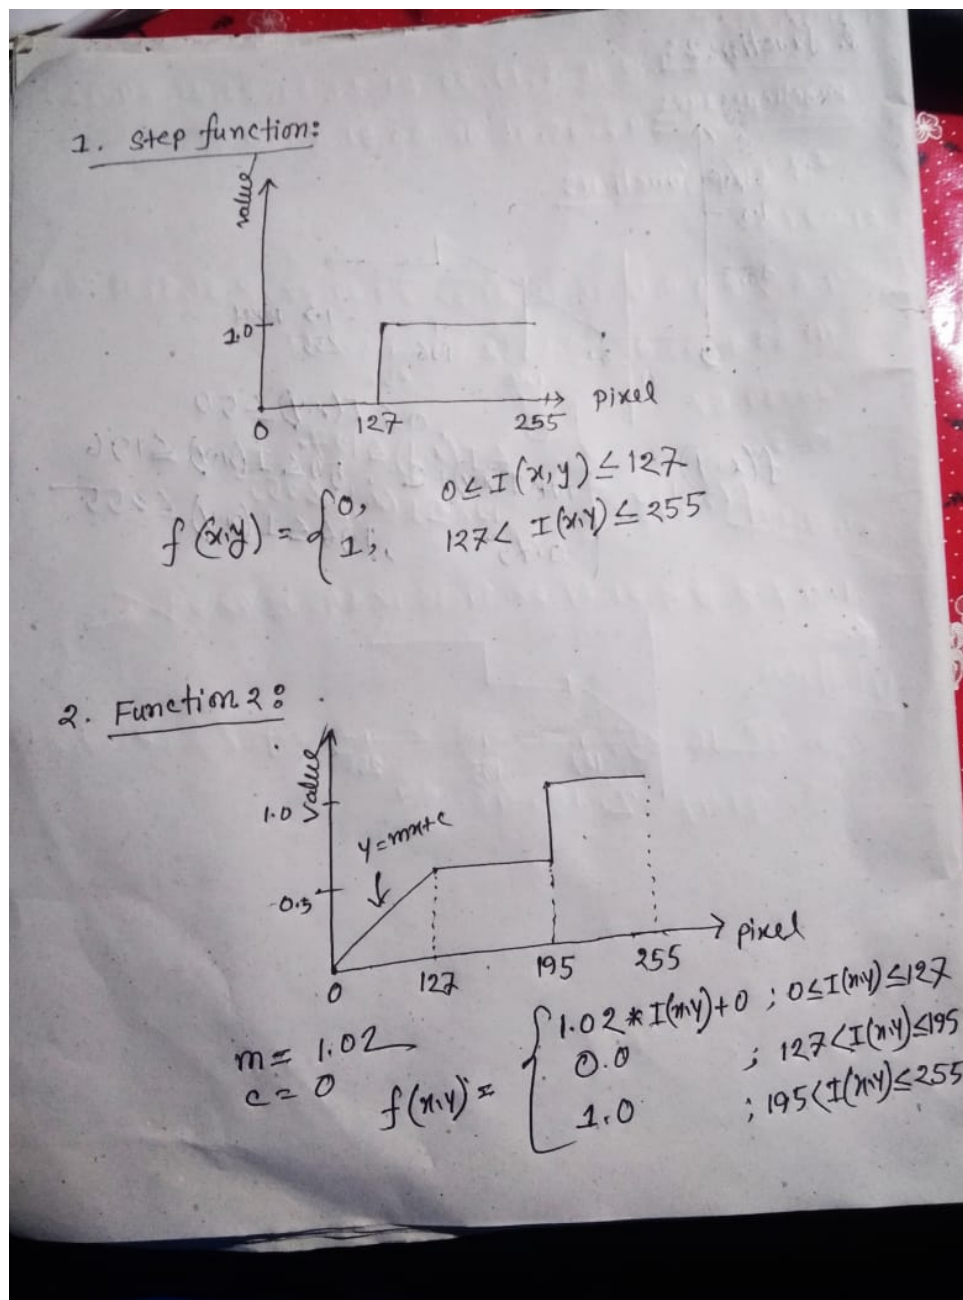 1. Step function:
value
1.0
0 127 255 pixel
f(x,y) = { 0, 0 ≤ I(x,y) ≤ 127
1, 127 < I(x,y) ≤ 255
2. Function 2:
value
1.0
y=mx+c
0.5
0 127 195 255 pixel
m = 1.02
c = 0
f(x,y) = { 1.02 * I(x,y)+0 ; 0≤I(x,y)≤127
0.0 ; 127<I(x,y)≤195
1.0 ; 195<I(x,y)≤255